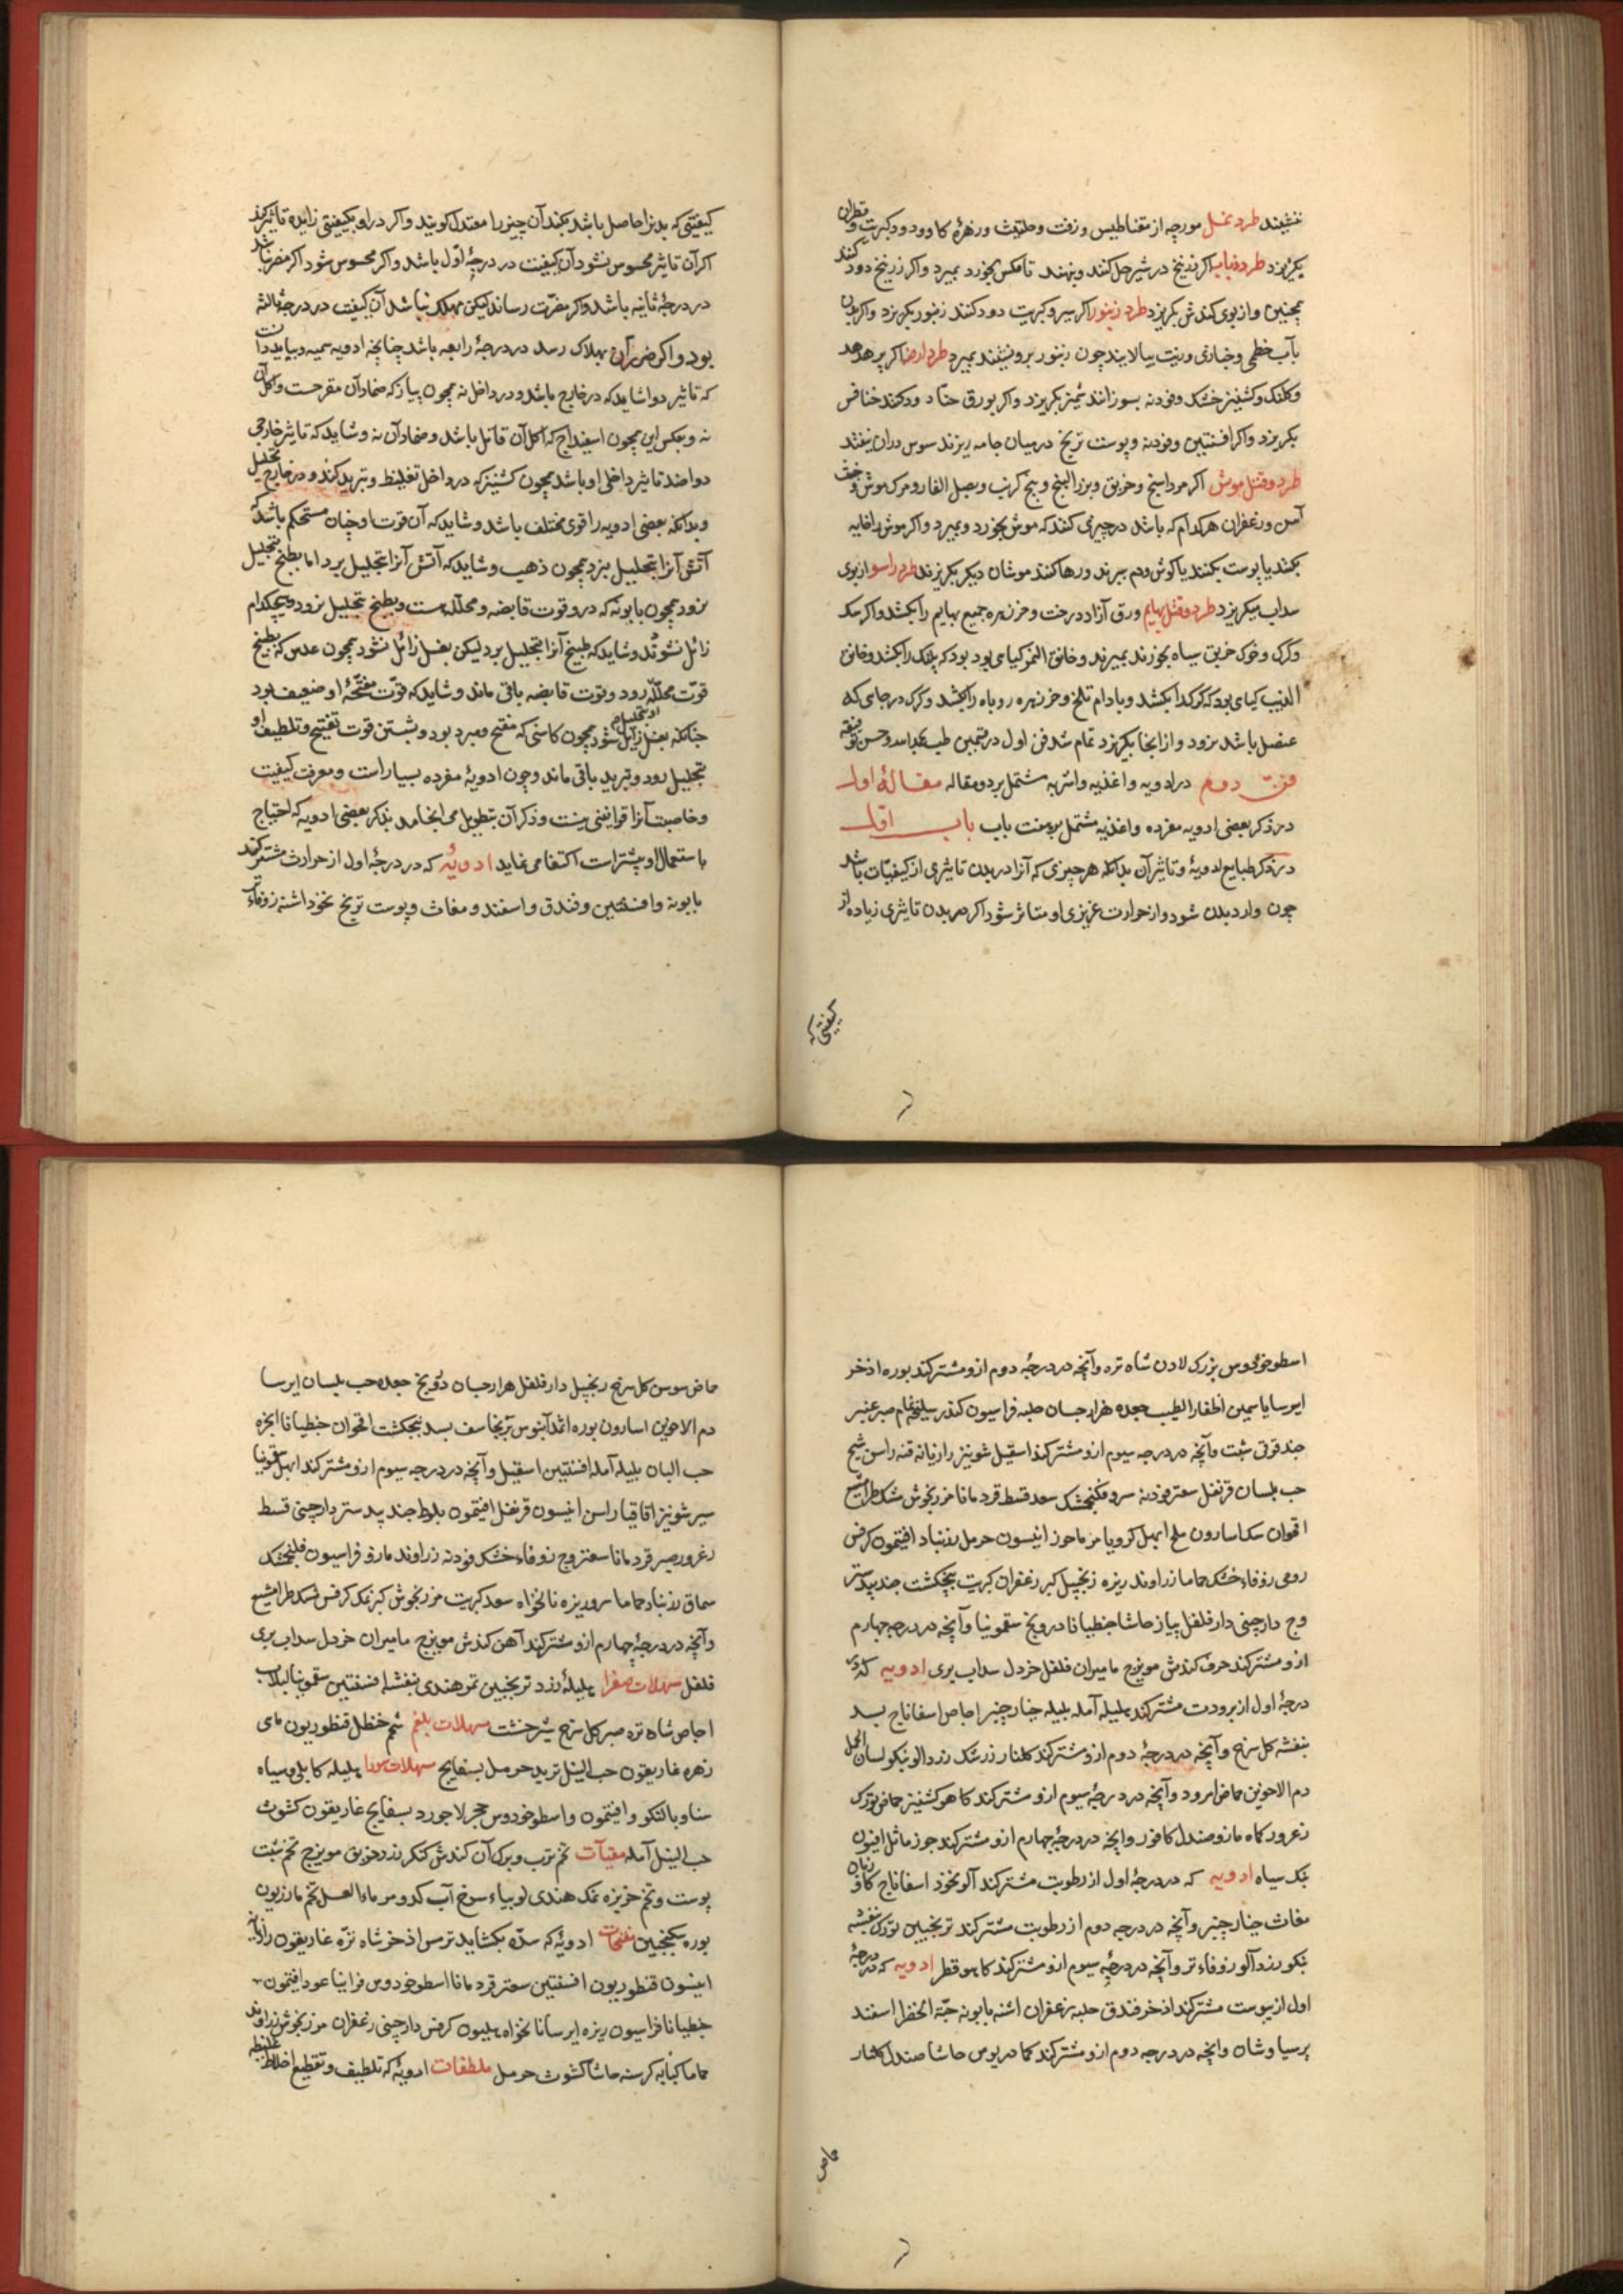 ننشیند طرد نمل مورچه از مقناطیس و زفت و حلتیت و زهرهٔ کاو و دود کبریت و قطران
بکریزد طرد ذباب اکر زرنیخ در شیر حل کنند و بنهند تا مکس بخورد بمیرد واکر زرنیخ دود کنند
همچنین واز بوی کندش بکریزد طرد زنبور اکر سیر و کبریت دود کنند زنبور بکریزد واکر
بآب خطمی و خبازی و زیت بیالایند چون زنبور برو نشیند بمیرد طرد ارضه اکر پر هدهد
و کلنک و کشنیز خشک و فودنه بسوزانند بکریزد واکر بورق دود کنند خنافس
بکریزد واکر افسنتین و فودنه و پوست ترنج در میان جامه ریزند سوس در آن نیفتد
طرد و قتل موش اکر مرداسنج و خربق و بزر البنج و بیخ کرنب و بصل الفار و مرک موش و خبث
آهن و زعفران هر کدام که باشد در چیزی کنند که موش بخورد و بمیرد واکر موش را
بکنند یا پوست بکنند یا کوش و دم ببرند و رها کنند موشان دیکر بکریزند طرد راسو از بوی
سداب میکریزد طرد و قتل بهایم ورق آزاد درخت و خرزهره جمیع بهایم را بکشد واکر سک
و کرک و خوک خربق سیاه بخورند بمیرند و خانق النمر کیاهی بود که پلنک را بکشد و خانق
الذیب کیاهی بود که کرک را بکشد و بادام تلخ و خرزهره روباه را بکشد و کرک در جای که
عنصل باشد نرود و از آنجا بکریزد تمام شد فن اول در قسمین طب بحمد الله و حسن توفیقه
فن دوم در ادویه و اغذیه و اشربه مشتمل بر دو مقاله مقالهٔ اول
در ذکر بعضی ادویه مفرده و اغذیه مشتمل بر بیست باب باب اول
در ذکر طبایع ادویهٔ و تاثیر آن بدانکه هر چیزی که آنرا در بدن تاثیری از کیفیات باشد
چون وارد بدن شود و از حرارت غریزی او متاثر شود اکر در بدن تاثیری زیاده از
کیفیتی که
کیفیتی که بدنرا حاصل باشد نکند آن چیز را معتدل کویند واکر در او بکیفیتی زایده تاثیر کند
اکر آن تاثیر محسوس نشود آن کیفیت در درجهٔ اول باشد واکر محسوس شود اکر مضر نباشد
در درجهٔ ثانیه باشد واکر مضرت رساند لیکن مهلک نباشد آن کیفیت در درجهٔ ثالثه
بود واکر ضرر آن بهلاک رسد در درجهٔ رابعه باشد چنانچه ادویه سمیه و بباید دانست
که تاثیر دوا شاید که در خارج باشد و در داخل نه همچون پیاز که ضماد آن مقرحست و اکل آن
نه و بعکس این همچون اسفیداج که اکل آن قاتل باشد و ضماد آن نه و شاید که تاثیر خارجی
دوا ضد تاثیر داخلی او باشد همچون کشنیز که در داخل تغلیظ و تبرید کند و در خارج تحلیل
و بدانکه بعضی ادویه را قوی مختلف باشد و شاید که آن قوت او چنان مستحکم باشد که
آتش آنرا بتحلیل نبرد همچون ذهب و شاید که آتش آنرا بتحلیل برد اما بطبخ بتحلیل
نرود همچون بابونه که در و قوت قابضه و محلله هست و بطبخ بتحلیل نرود و هیچکدام
زائل نشوند و شاید که طبخ آنرا بتحلیل برد لیکن بغسل زائل نشود همچون عدس که بطبخ
قوت محلله رود و قوت قابضه باقی ماند و شاید که قوت مفتحهٔ او ضعیف بود
چنانکه بغسل زایل شود همچون کاسنی که مفتح و مبرد بود و بشستن قوت تفتیح و تلطیف او
بتحلیل رود و تبرید باقی ماند و چون ادویهٔ مفرده بسیار است و معرفت کیفیت
و خاصیت آنرا قوانینی نیست و ذکر آن بتطویل می انجامد بذکر بعضی ادویه که احتیاج
باستعمال او بیشتر است اکتفا می نماید ادویهٔ که در درجهٔ اول از حرارت مشترکند
بابونه و افسنتین و فندق و اسفند و مغاث و پوست ترنج نخود اشنه زوفاء
اسطوخودوس بزرک لادن شاه تره وآنچه در درجهٔ دوم ازو مشترکند بوره اذخر
ایرسا یاسمین اظفار الطیب جعده هزار جسان حلبه فراسیون کندر سلیخه نمام صبر عنبر
جندقوقی شبت وآنچه در درجه سیوم ازو مشترکند اسقیل شونیز رازیانه قنه راسن شیح
حب بلسان قرنفل سعتر فودنه سرو فلنجمشک سعد قسط قردمانا مرزنجوش مشکطرامشیع
اقحوان سک اسارون ملح ابهل کرویا مر ماحوز انیسون حرمل زرنباد افیتمون کرفس
رومی زوفاء خشک حماما زراوند زیره زنجبیل کبر زعفران کبریت بنجنکشت جندبیدستر
وج دارچینی دارفلفل پیاز حاشا جنطیانا درونج سقمونیا وآنچه در درجهٔ چهارم
ازو مشترکند حرف کندش مویزج مامیران فلفل خردل سداب بری ادویه که در
درجهٔ اول از برودت مشترکند هلیله آمله بلیله خیارچنبر اجاص اسفاناج بسد
بنفشه کل سرخ وآنچه در درجهٔ دوم ازو مشترکند کلنار زرشک زردالو نیکو لسان الحمل
دم الاخوین حماض امرود وآنچه در درجهٔ سیوم ازو مشترکند کاهو کشنیز حماض تورک
زعرور کماه مازو صندل کافور وانچه در درجهٔ چهارم ازو مشترکند جوز ماثل افیون
بنک سیاه ادویه که در درجهٔ اول از رطوبت مشترکند آلو نخود اسفاناج کاو زبان
مغاث خیارچنبر وآنچه در درجه دوم از رطوبت مشترکند ترنجبین تورک بنفشه
نیکو زردآلو زوفاء تر وآنچه در درجهٔ سیوم ازو مشترکند کاهو قطر ادویه که در درجهٔ
اول از یبوست مشترکند اذخر فندق حلبه زعفران اشنه بابونه حبة الخضرا اسفند
پرسیاوشان وانچه در درجه دوم ازو مشترکند کمادریوس حاشا صندل کلنار
حماض
حماض سوسن کل سرخ زنجبیل دارفلفل هزارجسان درونج جعده حب بلسان ایرسا
دم الاخوین اسارون بوره اثمد آبنوس برنجاسف بسد بنجنکشت اقحوان جنطیانا انجره
حب البان بلیله آمله افسنتین اسقیل وآنچه در درجه سیوم ازو مشترکند ابهل سقمونیا
سیر شونیز اقاقیا راسن انیسون قرنفل افیتمون بلوط جندبیدستر دارچینی قسط
زعرور صبر قردمانا سعتر وج زوفاء خشک فودنه زراوند مازو فراسیون فلنجمشک
سماق زرنباد حماما سرو زیزه نانخواه سعد کبریت مرزنجوش کبر نمک کرفس مشکطرامشیع
وآنچه در درجهٔ چهارم ازو مشترکند آهن کندش مویزج مامیران خردل سداب بری
فلفل مسهلات صفرا هلیلهٔ زرد ترنجبین تمر هندی بنفشه افسنتین سقمونیا لبلاب
اجاص شاه تره صبر کل سرخ شیرخشت مسهلات بلغم شحم حنظل قنطوریون ماهی
زهره غاریقون حب النیل تربد حرمل بسفایج مسهلات سودا هلیله کابلی و سیاه
سنا و بالنکو و افیتمون و اسطوخودوس حجر لاجورد بسفایج غاریقون کشوث
حب النیل آمله مقیآت تخم ترب و برک آن کندش کنکرزد خربق مویزج تخم شبت
پوست و تخم خربزه نمک هندی لوبیاء سرخ آب کدو مر ماء العسل تخم مازریون
بوره سکنجبین مفتحات ادویهٔ که سده بکشاید ترمس اذخر شاه تره غاریقون رازیانه
انیسون قنطوریون افسنتین سعتر قردمانا اسطوخودوس فراینا عود افیتمون
جنطیانا فراسیون زیره ایرسا نانخواه هلیون کرفس دارچینی زعفران مرزنجوش زراوند
حماما کبابه کرسنه حاشا کشوث حرمل ملطفات ادویهٔ که تلطیف و تقطیع اخلاط غلیظه